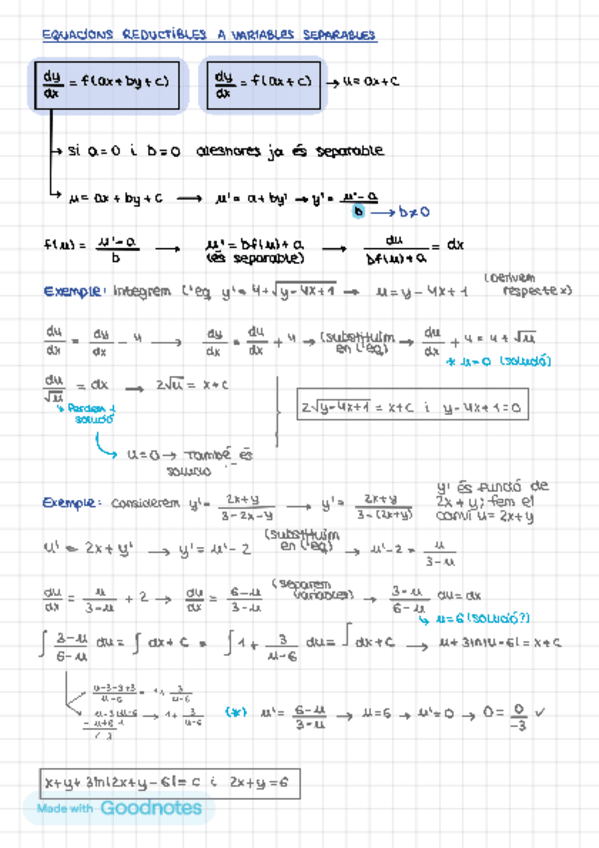 EQUACIONS REDUCTIBLES A VARIABLES SEPARABLES
dy/dx = f(ax+by+c) dy/dx = f(ax+c) → u = ax+c
→ si a=0 i b=0 aleshores ja és separable
→ u = ax + by + c → u' = a + by' → y' = u'-a/b → b≠0
f(u) = u'-a/b → u' = bf(u)+a (és separable) → du/bf(u)+a = dx
Exemple: Integrem l'eq y' = 4+√y-4x+1 → u = y - 4x + 1 (derivem respecte x)
du/dx = dy/dx - 4 → dy/dx = du/dx + 4 → (substituïm en l'eq) → du/dx + 4 = 4 + √u
* u=0 (solució)
du/√u = dx → 2√u = x+c
Perdem 1 solució
2√y-4x+1 = x+c i y-4x+1=0
u=0 → També és solució
Exemple: Considerem y' = 2x+y/3-2x-y → y' = 2x+y/3-(2x+y) y' és funció de 2x+y; fem el canvi u= 2x+y
u' = 2x + y' → y' = u'-2 → (substituïm en l'eq) → u'-2 = u/3-u
du/dx = u/3-u + 2 → du/dx = 6-u/3-u (separem variables) → 3-u/6-u du = dx
↳ u=6 (solució?)
∫ 3-u/6-u du = ∫ dx + c = ∫ 1 + 3/u-6 du = ∫ dx + c → u+3ln|u-6| = x+c
u-3-3+3/u-6 = 1+ 3/u-6
u-3 |u-6 → 1+ 3/u-6
-u+6 1
3
(*) u' = 6-u/3-u → u=6 → u'=0 → 0 = 0/-3 ✓
x+y+3ln|2x+y-6| = c i 2x+y=6
Made with Goodnotes